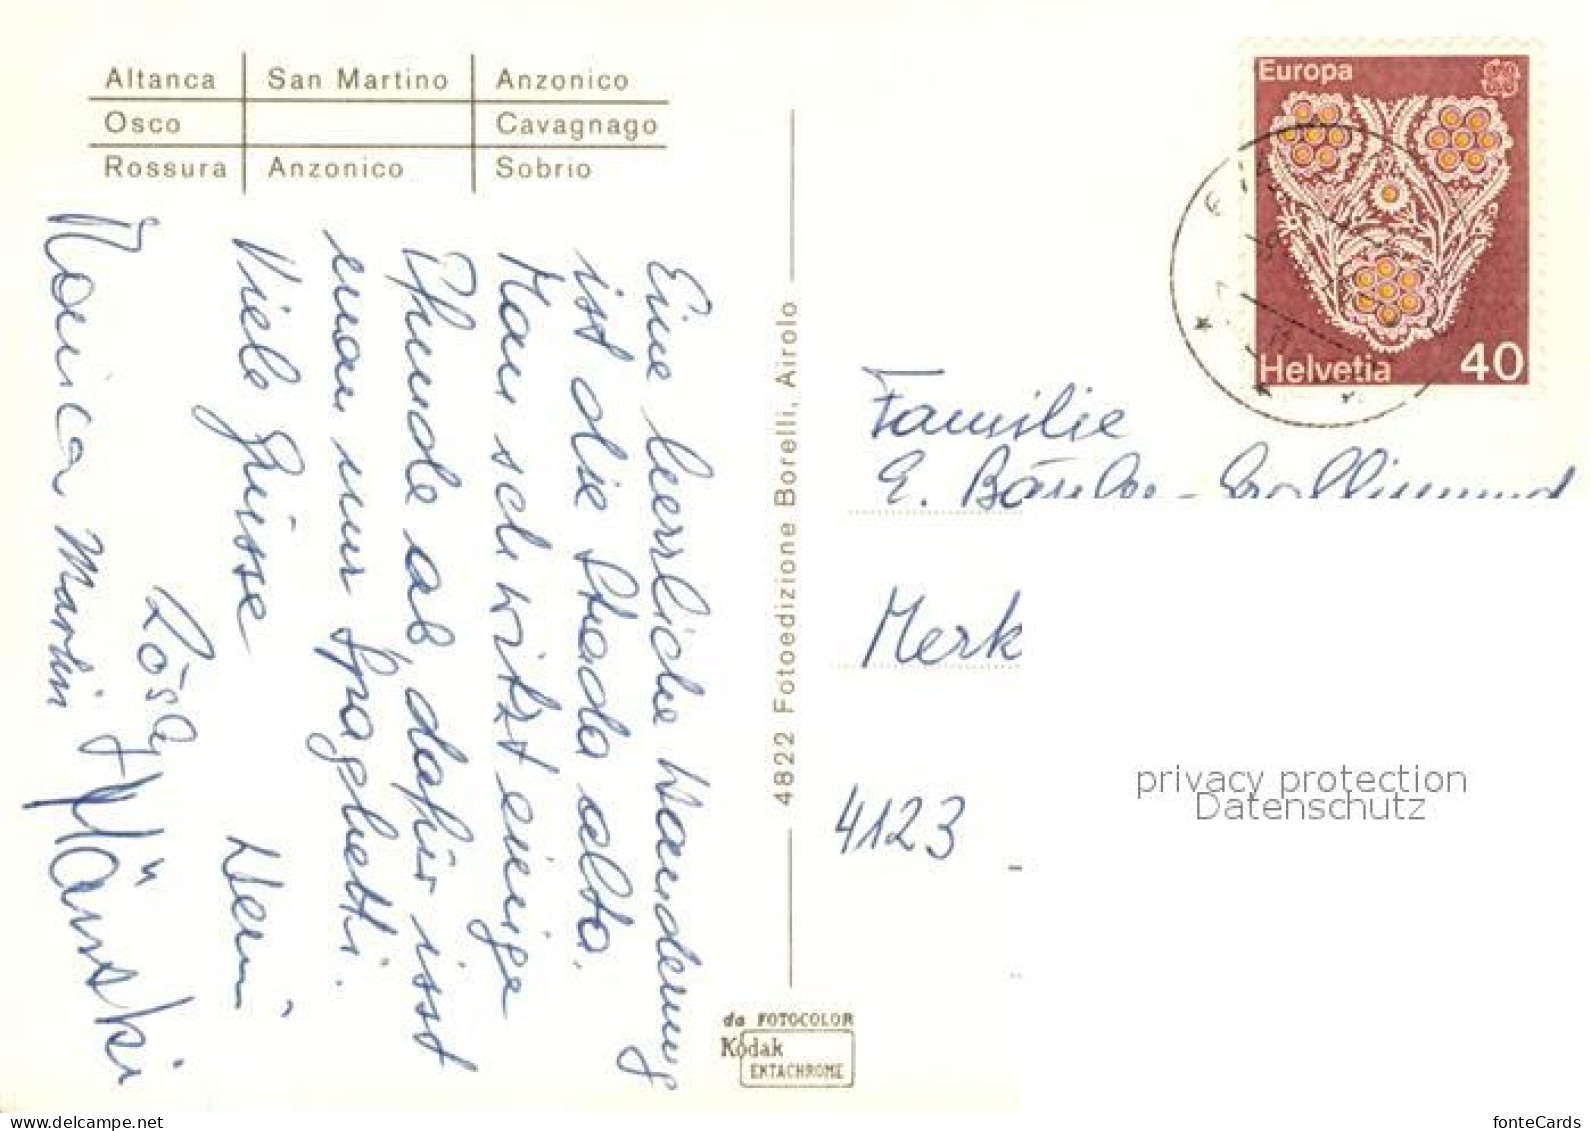 Altanca San Martino Anzonico
Osco Cavagnago
Rossura Anzonico Sobrio
Eine herrliche Wanderung
ist die Strada alta.
Man schwitzt einige
Pfunde ab, dafür isst
man nur Spaghetti.
Viele Grüsse Heini
Rösly
Monica Martin
4822 Fotoedizione Borelli, Airolo
da FOTOCOLOR
Kodak
EKTACHROME
Europa
Helvetia 40
Familie
E.
Merk
4123
privacy protection
Datenschutz
www.fontecards.com fonteCards